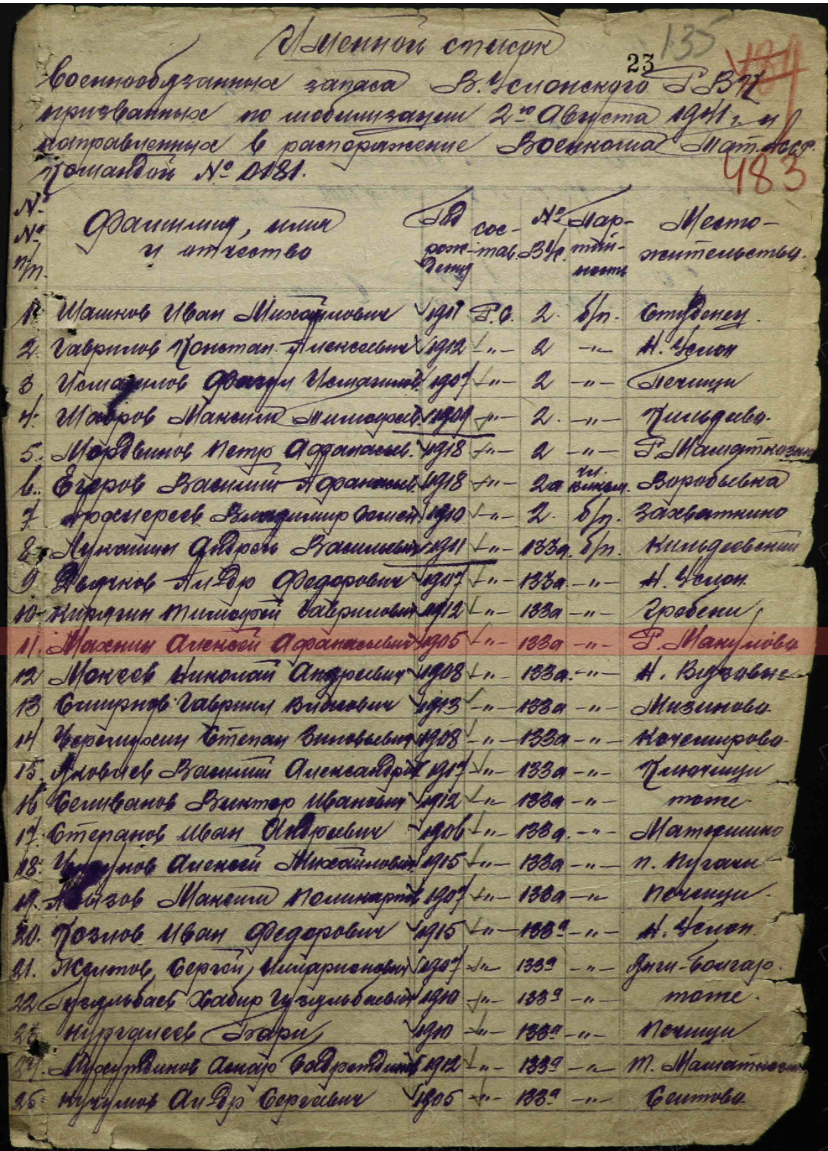 Именной список
23 135
военнообязанных запаса В.Услонского РВК 484
призванных по мобилизации 2го Августа 1941 г. и
направленных в распоряжение Военкома
Командой № 0181. 483
№ № п/п. Фамилия, имя и отчество Год рождения состав. № ВУС. Партийность Местожительства.
1. Машков Иван Михайлович 1901 Р.С. 2. б/п. Студенец.
2. Гаврилов Констан. Алексеевич 1912 -"- 2 -"- Н. Услон
3 Исмагилов 1907 -"- 2 -"- Печищи
4. Шавров Максим Тимофеев 1909 -"- 2. -"- Кильдеево.
5. Мордвинов Петр Афанасьев. 1918 -"- 2 -"-
6. Егоров Василий 1918 -"- 2а чл. Воробьевка
7 Владимир 1910 -"- 2. б/п. Захваткино
8. Лукашин Андрей Васильевич 1911 -"- 133а. б/п. Кильдеевский
9 Дьячков Ал-др Федорович 1907 -"- 133а -"- Н. Услон.
10. Кирягин Тимофей Гаврилович 1912 -"- 133а -"- Гребени
11. Махнин Алексей Афанасьевич 1905 -"- 133а -"- Р. Макулово
12 Мокеев Николай Андреевич 1908 -"- 133а. -"-
13 Смирнов Гавриил 1913 -"- 133а -"- Мизиново
14 Черемухин Степан 1908 -"- 133а -"-
15. Яковлев Василий Александр. 1917 -"- 133а -"- Ключищи
16 Селиванов Виктор Иванович 1912 -"- 133а -"- тоже
17. Степанов Иван Андреевич 1906 -"- 133а. -"- Матюшино
18. Алексей Михайлович 1915 -"- 133а -"-
19. Максим 1907 -"- 133а -"- Печищи.
20. Козлов Иван Федорович 1915 -"- 133а -"- Н. Услон.
21. Желтов Сергей Илларионович 1907 -"- 133а -"- Янги-Болгар.
22 Гузельбаев Хабир Гузельбаевич 1910 -"- 133а -"- тоже.
23. Нургалеев Бари 1910 -"- 133а -"- Печищи
24. 1912 -"- 133а -"-
25. Кучумов Ал-др Сергеевич 1905 -"- 133а -"- Сеитово